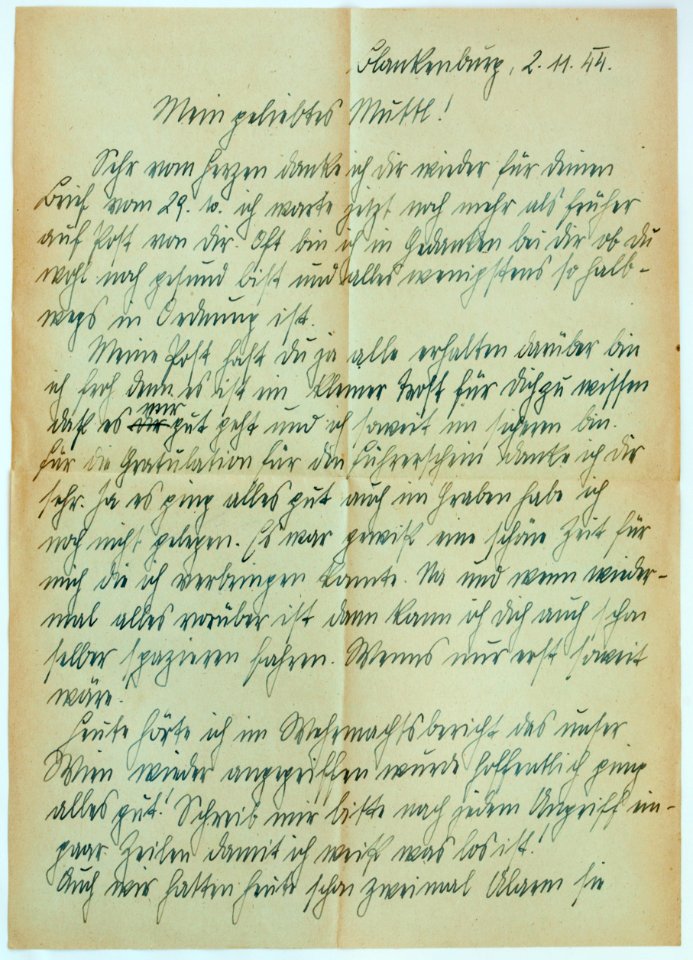 Blankenburg, 2. 11. 44.
Mein geliebtes Muttl!
Sehr vom Herzen danke ich dir wieder für deinen
Brief vom 29. 10. ich warte jetzt noch mehr als früher
auf Post von dir. Oft bin ich in Gedanken bei dir ob du
wohl noch gesund bist und alles wenigstens so halb-
wegs in Ordnung ist.
Meine Post hast du ja alle erhalten darüber bin
ich froh denn es ist ein kleiner Trost für dich zu wissen
daß es mir gut geht und ich soweit im sicheren bin.
Für die Gratulation für den Führerschein danke ich dir
sehr. Ja es ging alles gut auch im Graben habe ich
noch nicht gelegen. Es war gewiß eine schöne Zeit für
mich die ich verbringen konnte. Na und wenn wieder-
mal alles vorüber ist dann kann ich dich auch schon
selber spazieren fahren. Wenns nur erst soweit
wäre.
Heute hörte ich im Wehrmachtsbericht das unser
Wien wieder angegriffen wurde hoffentlich ging
alles gut! Schreib mir bitte nach jedem Angriff ein-
paar Zeilen damit ich weiß was los ist!
Auch wir hatten heute schon zweimal Alarm sie